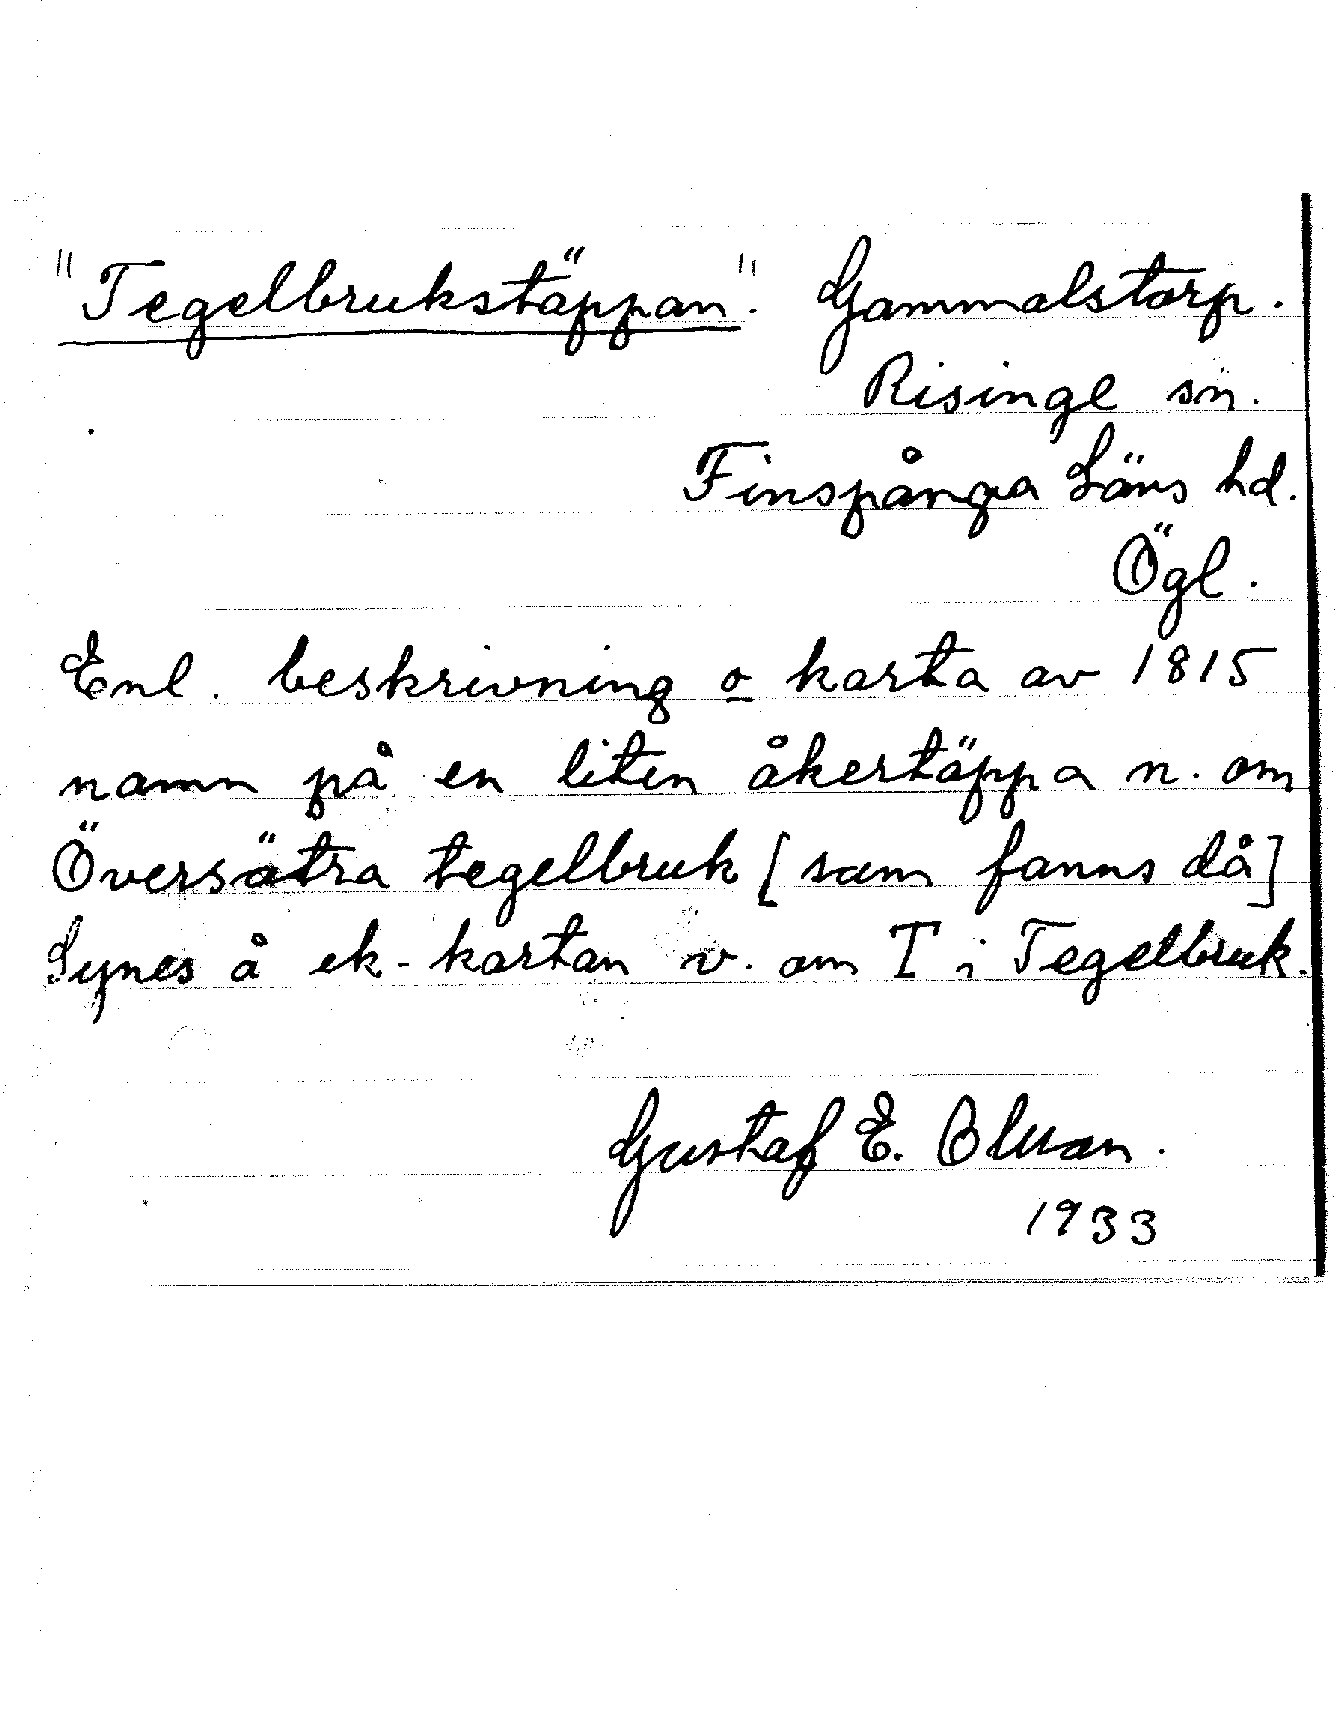 "Tegelbrukstäppan". Gammalstorp.
Risinge sn.
Finspånga Läns hd.
Ögl.
Enl. beskrivning o karta av 1815
namn på en liten åkertäppa n. om
Översätra tegelbruk [som fanns då]
Synes å ek-kartan v. om T i Tegelbruk.
Gustaf E. Olsson.
1933